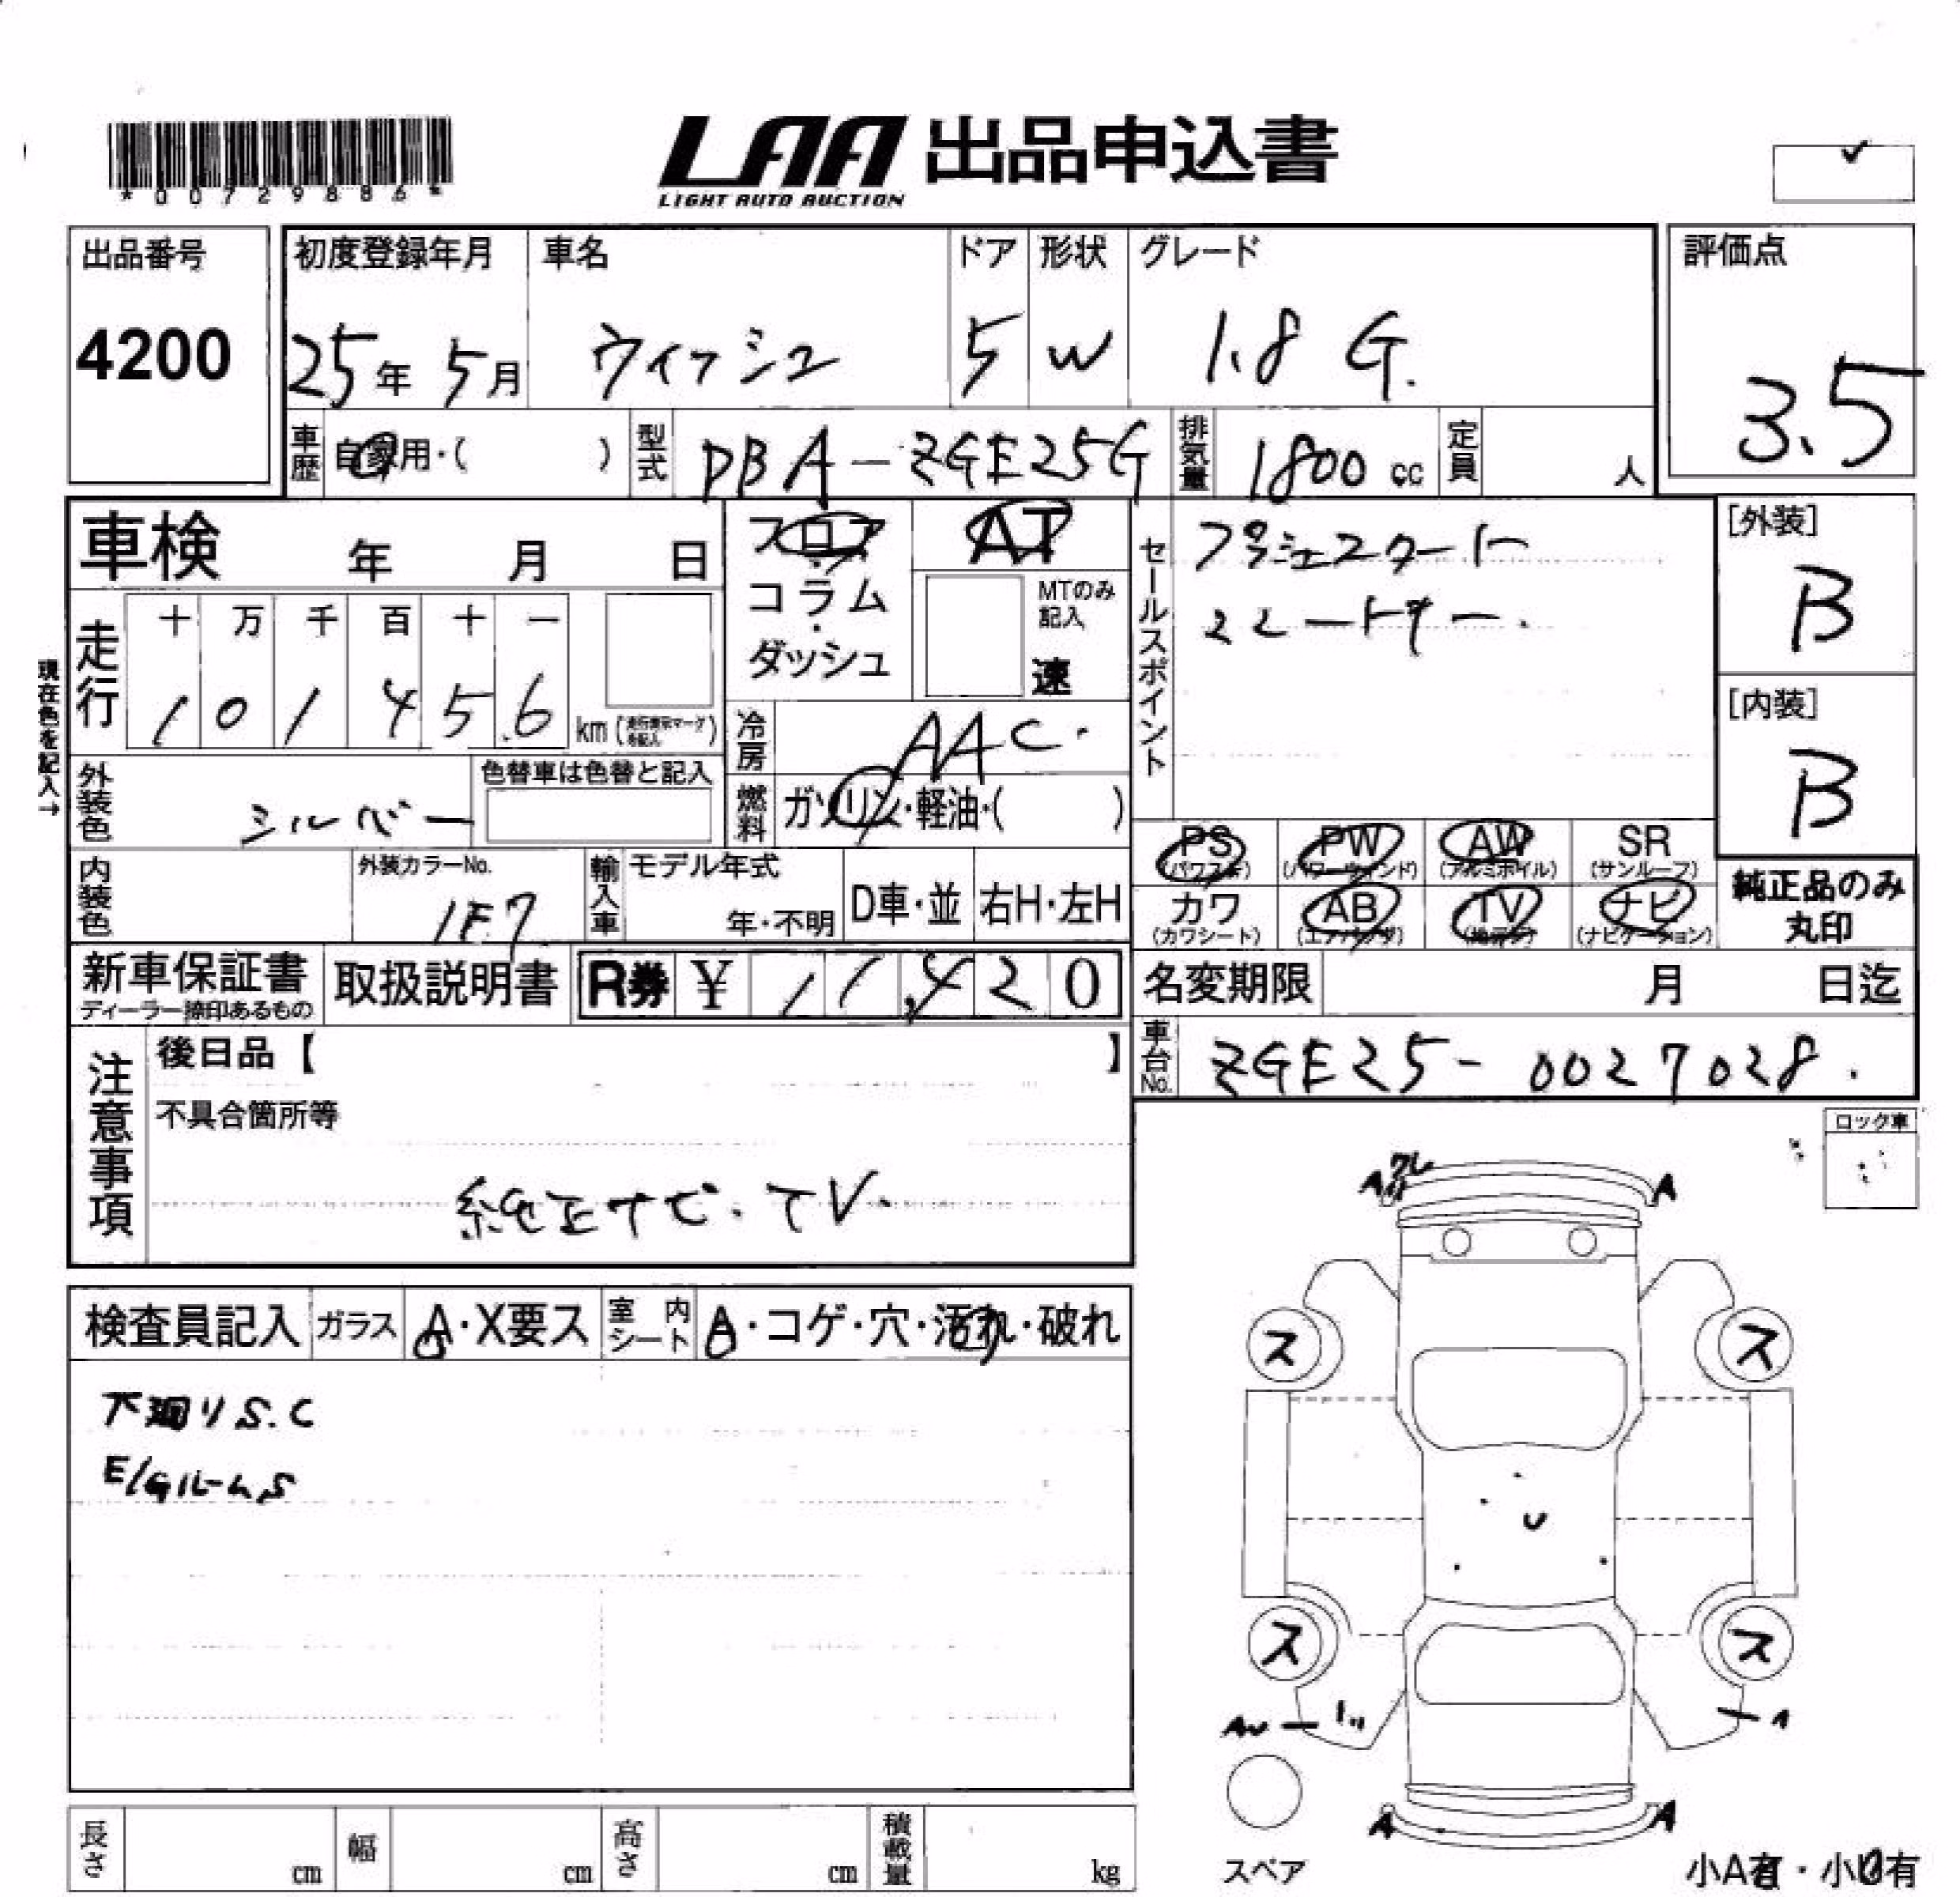 *00729886*
LAA 出品申込書
LIGHT AUTO AUCTION
出品番号
4200
初度登録年月
25年 5月
車名
ウィッシュ
ドア
5
形状
W
グレード
1.8 G.
評価点
3.5
車歴
自家用・( )
型式
DBA-ZGE25G
排気量
1800 cc
定員
人
車検 年 月 日
フロア
コラム
ダッシュ
AT
MTのみ記入
速
セールスポイント
プッシュスタート
スマートキー.
[外装]
B
[内装]
B
現在色を記入→
走行
十 万 千 百 十 一
1 0 1 4 5.6
km
冷房
AAC.
外装色
シルバー
色替車は色替と記入
燃料
ガソリン・軽油・( )
PS PW AW SR
(パワステ) (パワーウィンド) (アルミホイル) (サンルーフ)
カワ AB TV ナビ
(カワシート) (エアバッグ) (ナビゲーション)
純正品のみ
丸印
内装色
外装カラーNo.
1E7
輸入車
モデル年式
年・不明
D車・並
右H・左H
新車保証書
取扱説明書
R券 ¥ 11,420
名変期限 月 日迄
車台No.
ZGE25-0027028.
注意事項
後日品【 】
不具合箇所等
純正ナビ.TV.
ロック車
検査員記入
ガラス
A・X要ス
室内シート
A・コゲ・穴・汚れ・破れ
下廻りS.C
E/GルームS
A
A
ス
ス
U
ス
ス
A
A
スペア
長さ cm
幅 cm
高さ cm
積載量 kg
小A有・小U有